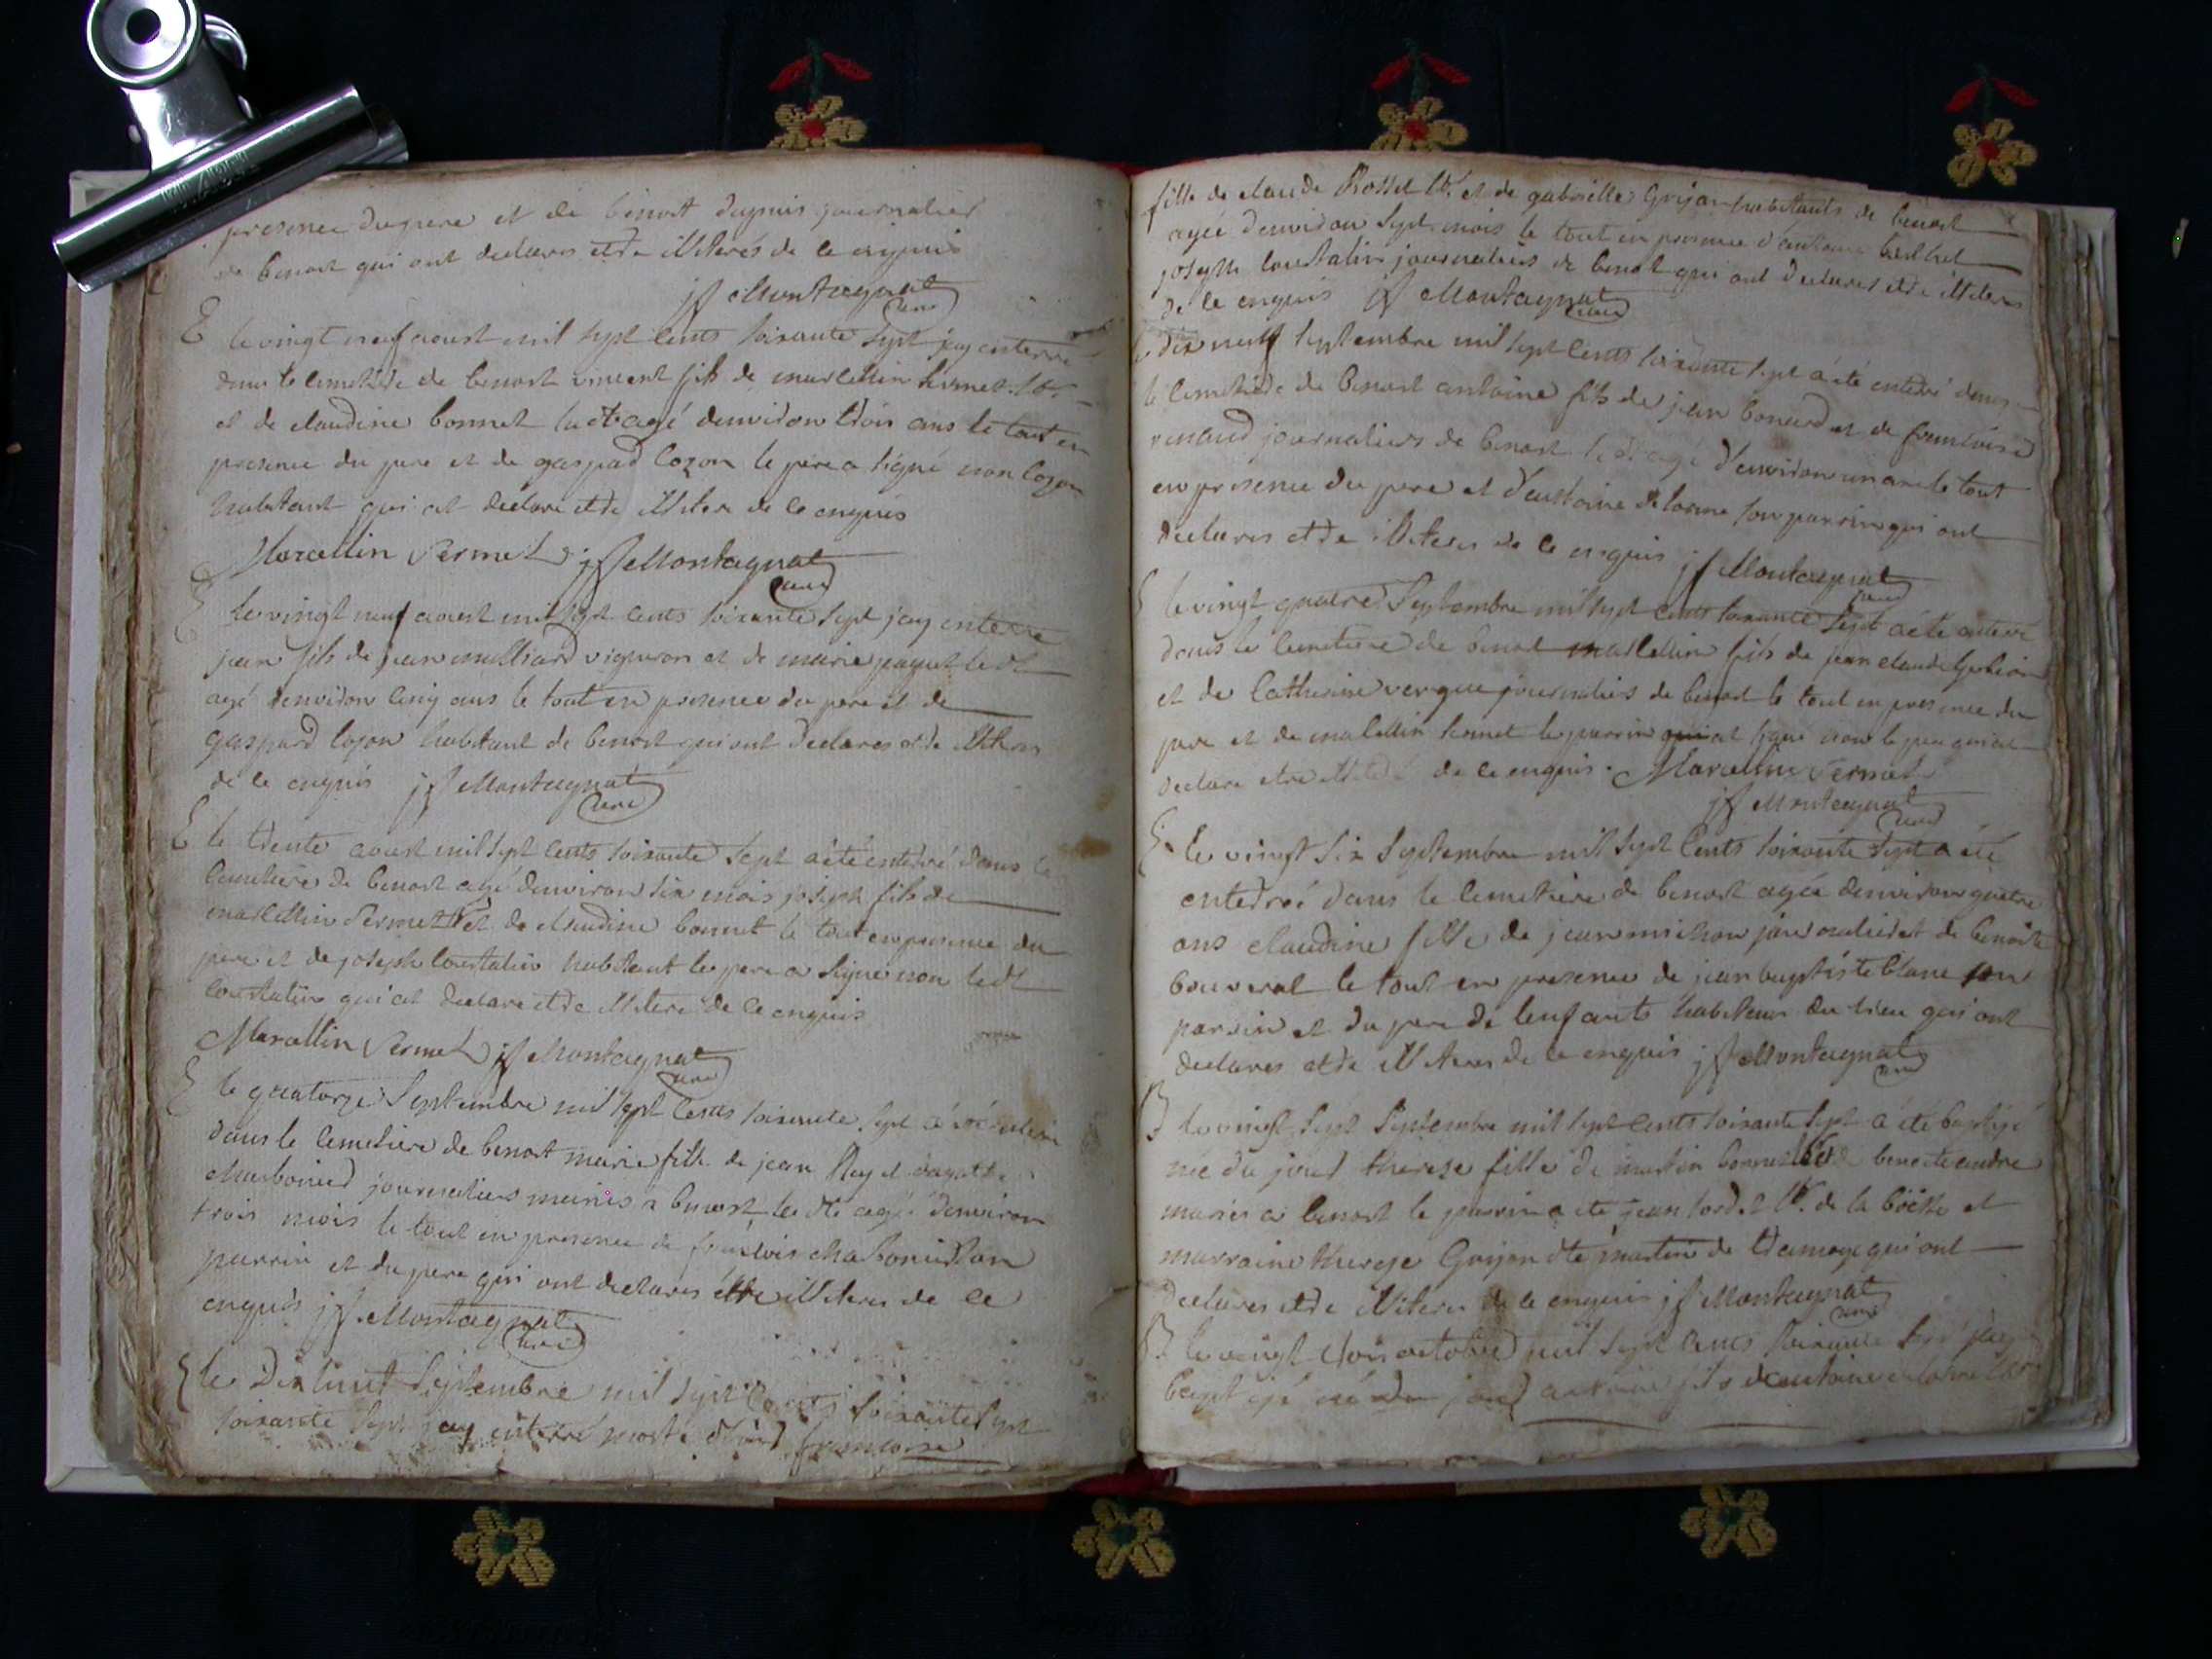 presence du pere et de benoit dupuis journalier
de benost qui ont declares etre illiterés de ce enquis
jf Montagnat
curé
E le vingt neuf aoust mil sept cents soixante sept jay enterré
dans le cimetiere de benost vincent fils de marcellin sermet
et de claudine bonnet agé denviron trois ans le tout en
presence du pere et de gaspad cozon le pere a signé non cozon
habitant qui at declare etre illitere de ce enquis
Marcellin Sermet jf Montagnat
curé
E le vingt neuf aoust mil sept cents soixante sept jay enterré
jean fils de jean milliard vigneron et de marie paquet ledt
agé denviron cinq ans le tout en presence du pere et de
gaspard cozon habitant de benost qui ont declares etre illiteres
de ce enquis jf Montagnat
curé
E le trente aoust mil sept cents soixante sept a été enterré dans le
cimetiere de benost agé denviron six mois joseph fils de
marcellin Sermet et de claudine bonnet le tout en presence du
pere et de joseph coustalin habitant le pere a signé non ledt
coustalin qui at declare etre illitere de ce enquis
Marcellin Sermet jf Montagnat
curé
E le quatorze Septembre mil sept cents soixante sept a été
dans le cimetiere de benost marie fille de jean Ray et
charbonied journaliers mariés a benost agé denviron
trois mois le tout en presence de francois son
parrin et du pere qui ont declares étre illiteres de ce
enquis jf Montagnat
curé
E le Dix huit Septembre mil sept cents soixante sept
soixante sept jay enterré francoise
fille de claude Rosset et de gabrielle Grijon habitants de benost
agée denviron sept mois le tout en presence d'antoine berthet
joseph coustalin journaliers de benost qui ont declares etre illiteres
de ce enquis jf Montagnat
curé
le dix neuf septembre mil sept cents soixante sept a été enterré dans
le cimetiere de benost antoine fils de jean bonard et de francoise
renaud journaliers de benost agé d'environ un an le tout
en presence du pere et d'antoine delorme son parrin qui ont
declares etre illiteres de ce enquis jf Montagnat
curé
E le vingt quatre Septembre mil sept cents soixante sept a été enterré
dans le cimetiere de benost marcellin fils de jean claude
et de Catherine vergue journaliers de benost le tout en presence du
pere et de marcellin sermet le parrin at signé non le pere qui at
declare etre de ce enquis. Marcellin Sermet
jf Montagnat
curé
E. le vingt six Septembre mil sept cents soixante sept a été
enterré dans le cimetiere de benost agée denviron quatre
ans claudine fille de jean michon journalier et de benoite
bouverat le tout en presence de jean baptiste blanc son
parrin et du pere de lenfant habitans du lieu qui ont
declares etre illiteres de ce enquis jf Montagnat
curé
B le vingt sept Septembre mil sept cents soixante sept a été baptizé
née du jour therese fille de martin bonnet benoite andre
mariés a benost le parrin a été jean de la bôëtte et
marraine therese Grijon martin de qui ont
declares etre illiteres de ce enquis jf Montagnat
curé
B. le vingt octobre mil sept cents soixante sept jay
baptizé né du jour antoine fils dantoine